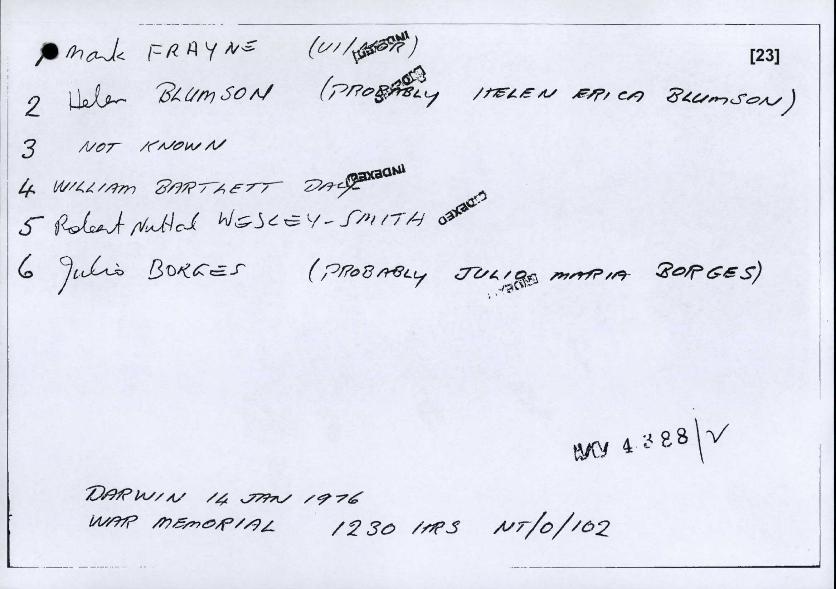 1 Mark FRAYNE (U1/ INDEXED [23]
2 Helen BLUMSON (PROBABLY HELEN ERICA BLUMSON)
3 NOT KNOWN
4 WILLIAM BARTLETT DALY INDEXED
5 Robert Nuttal WESLEY-SMITH INDEXED
6 Julio BORGES (PROBABLY JULIO MARIA BORGES)
4388/V
DARWIN 14 JAN 1976
WAR MEMORIAL 1230 HRS NT/O/102